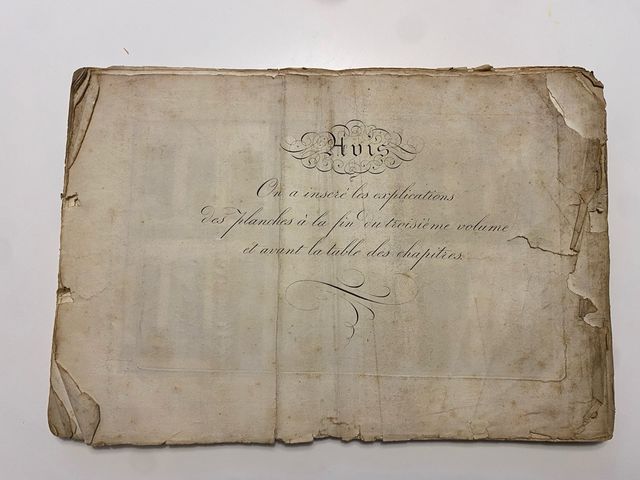 Avis
On a inseré les explications
des planches à la fin du troisième volume
et avant la table des chapitres.